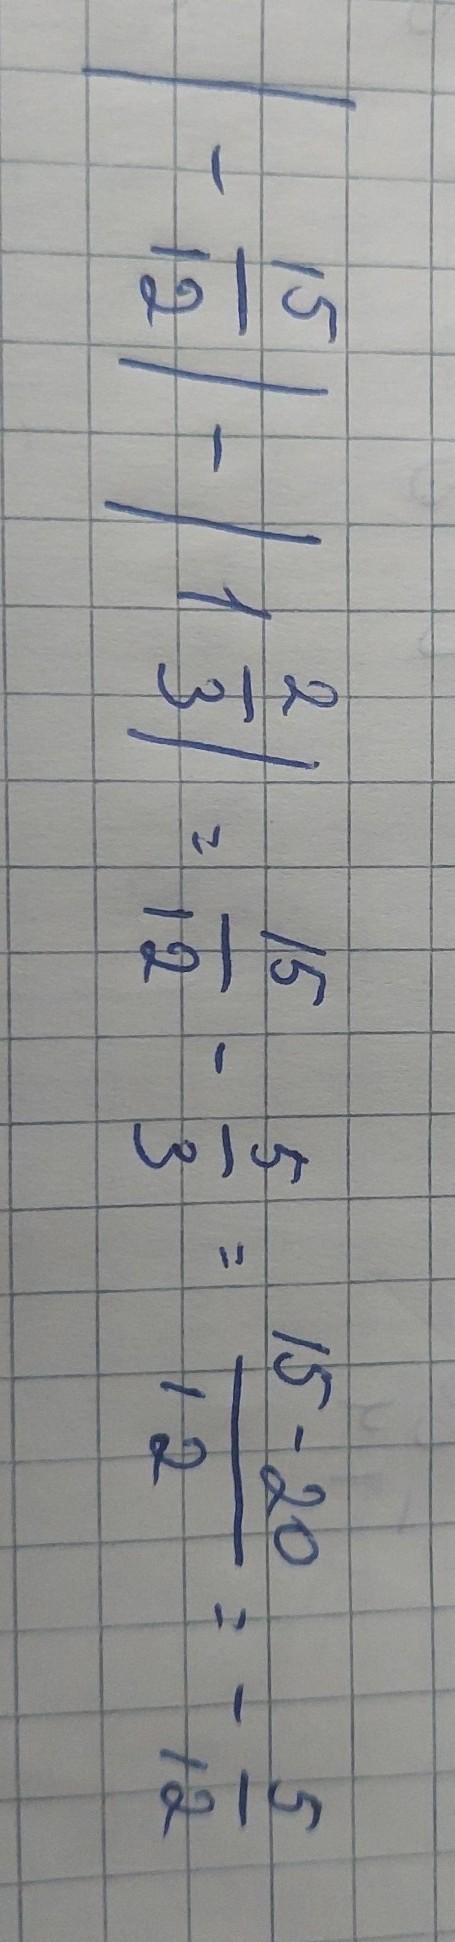 |-15/12| - |1 2/3| = 15/12 - 5/3 = (15-20)/12 = -5/12